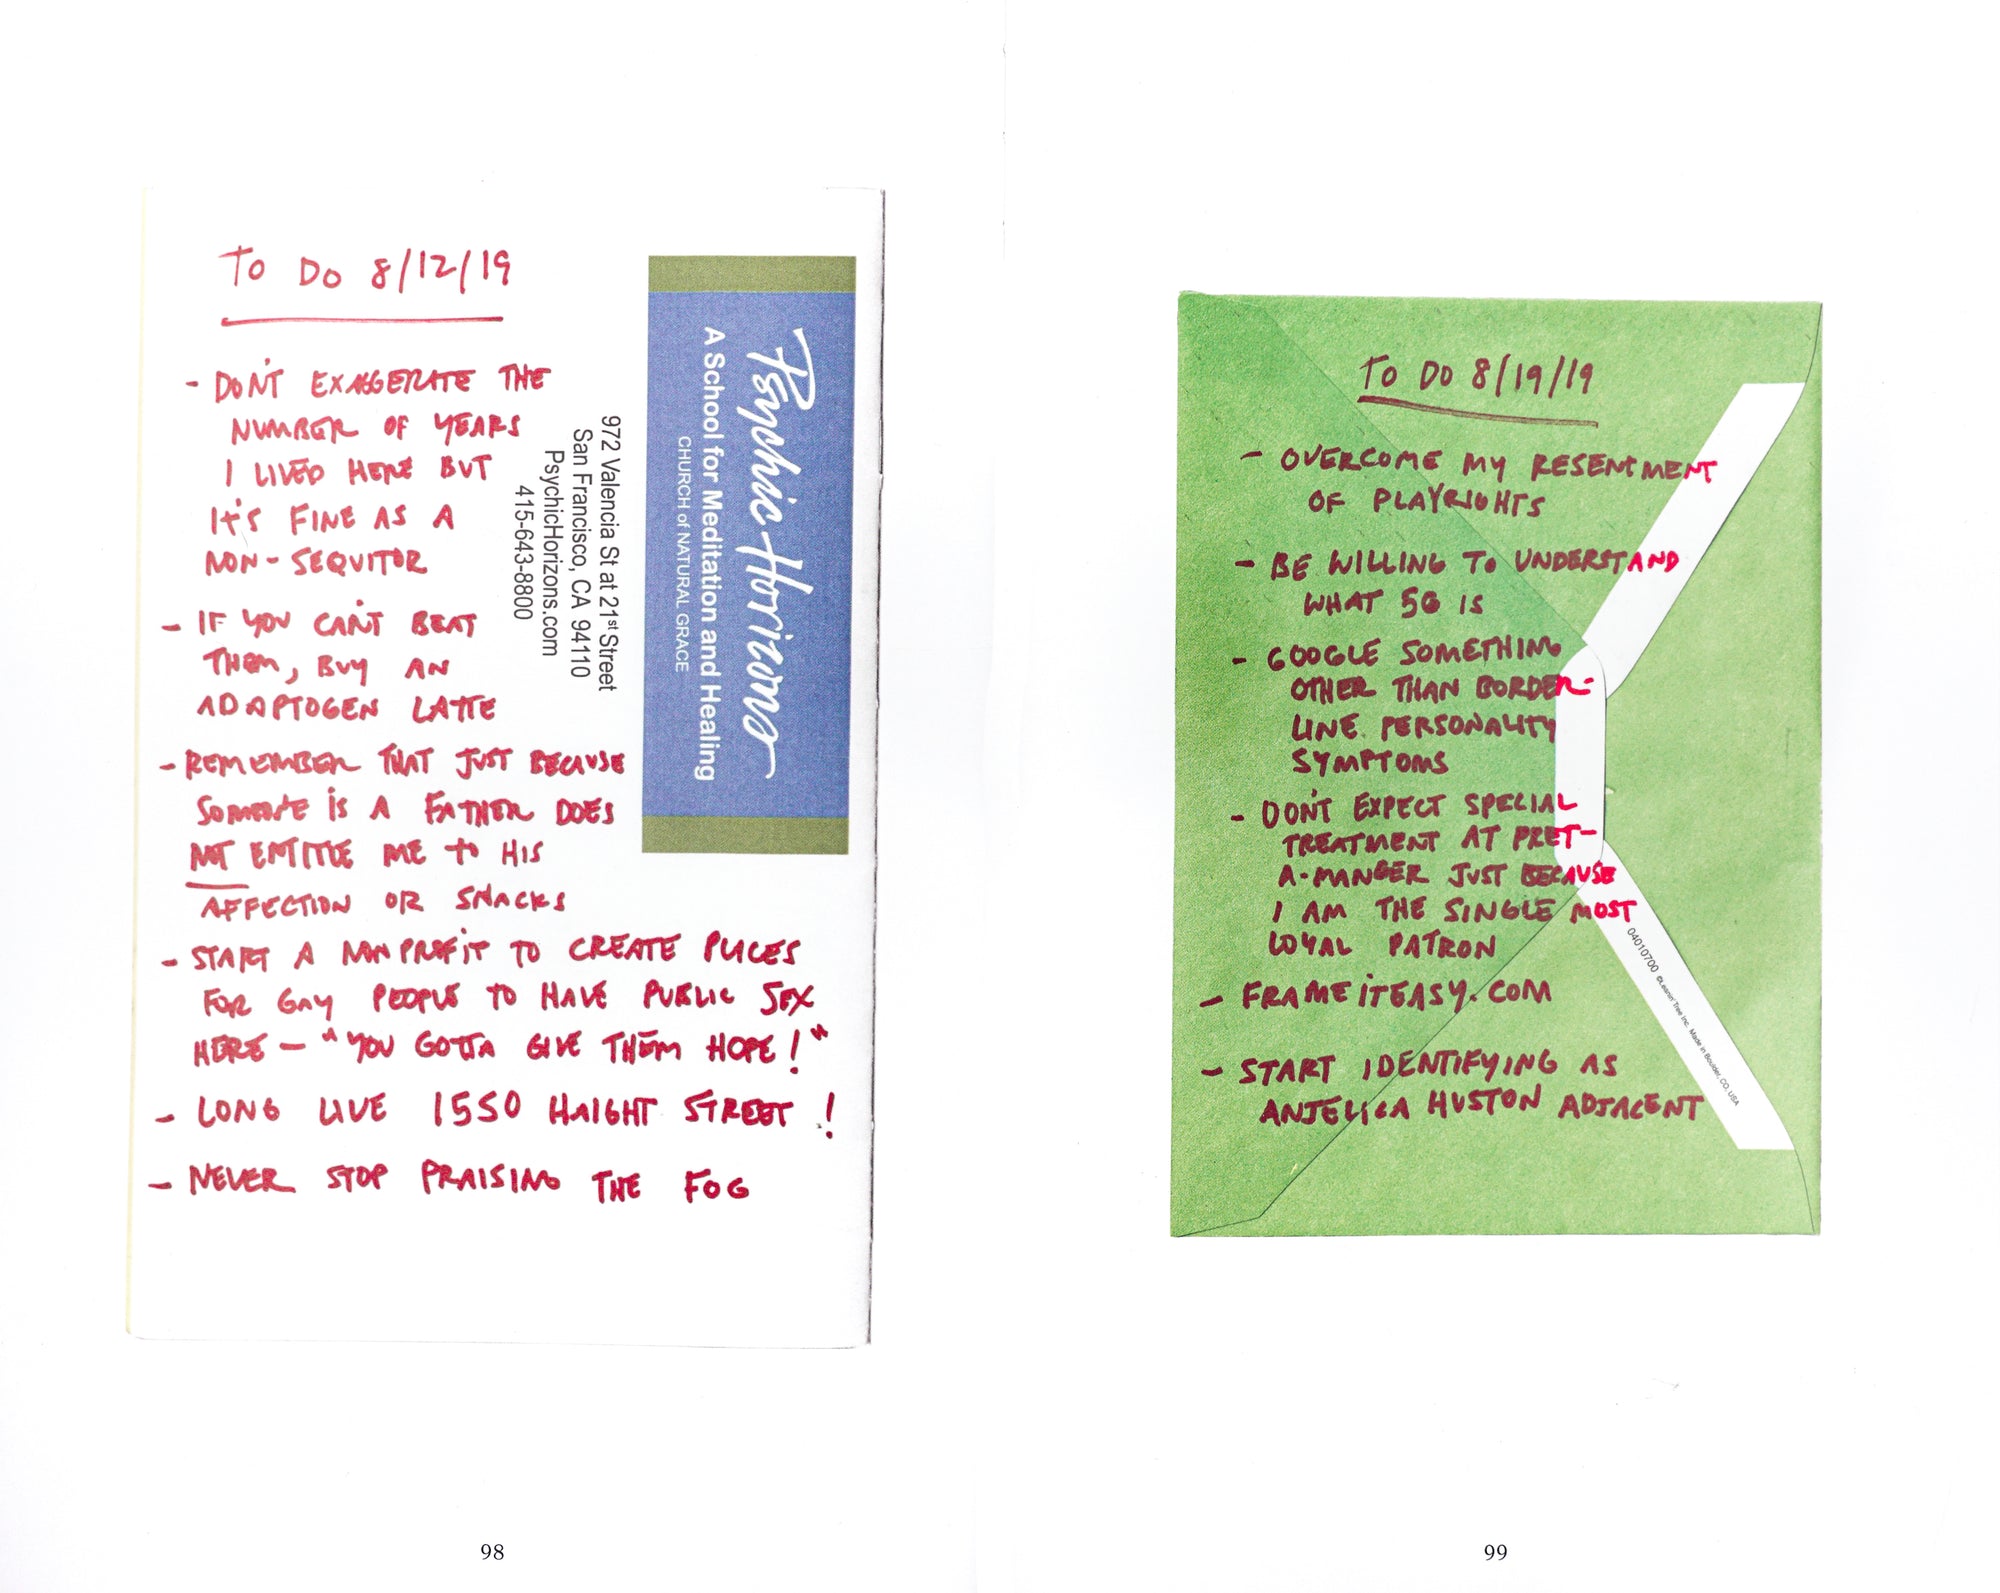 To Do 8/12/19
- DON'T EXAGGERATE THE
NUMBER OF YEARS
I LIVED HERE BUT
IT'S FINE AS A
NON-SEQUITOR
- IF YOU CAN'T BEAT
THEM, BUY AN
ADAPTOGEN LATTE
- REMEMBER THAT JUST BECAUSE
SOMEONE IS A FATHER DOES
NOT ENTITLE ME TO HIS
AFFECTION OR SNACKS
- START A NONPROFIT TO CREATE PLACES
FOR GAY PEOPLE TO HAVE PUBLIC SEX
HERE - "YOU GOTTA GIVE THEM HOPE!"
- LONG LIVE 1550 HAIGHT STREET!
- NEVER STOP PRAISING THE FOG
Psychic Horizons
A School for Meditation and Healing
CHURCH of NATURAL GRACE
972 Valencia St at 21st Street
San Francisco, CA 94110
PsychicHorizons.com
415-643-8800
98
To Do 8/19/19
- OVERCOME MY RESENTMENT
OF PLAYRIGHTS
- BE WILLING TO UNDERSTAND
WHAT 5G IS
- GOOGLE SOMETHING
OTHER THAN BORDER-
LINE PERSONALITY
SYMPTOMS
- DON'T EXPECT SPECIAL
TREATMENT AT PRET-
A-MANGER JUST BECAUSE
I AM THE SINGLE MOST
LOYAL PATRON
- FRAMEITEASY.COM
- START IDENTIFYING AS
ANJELICA HUSTON ADJACENT
04010700 ©Leanin' Tree Inc. Made in Boulder, CO, USA
99